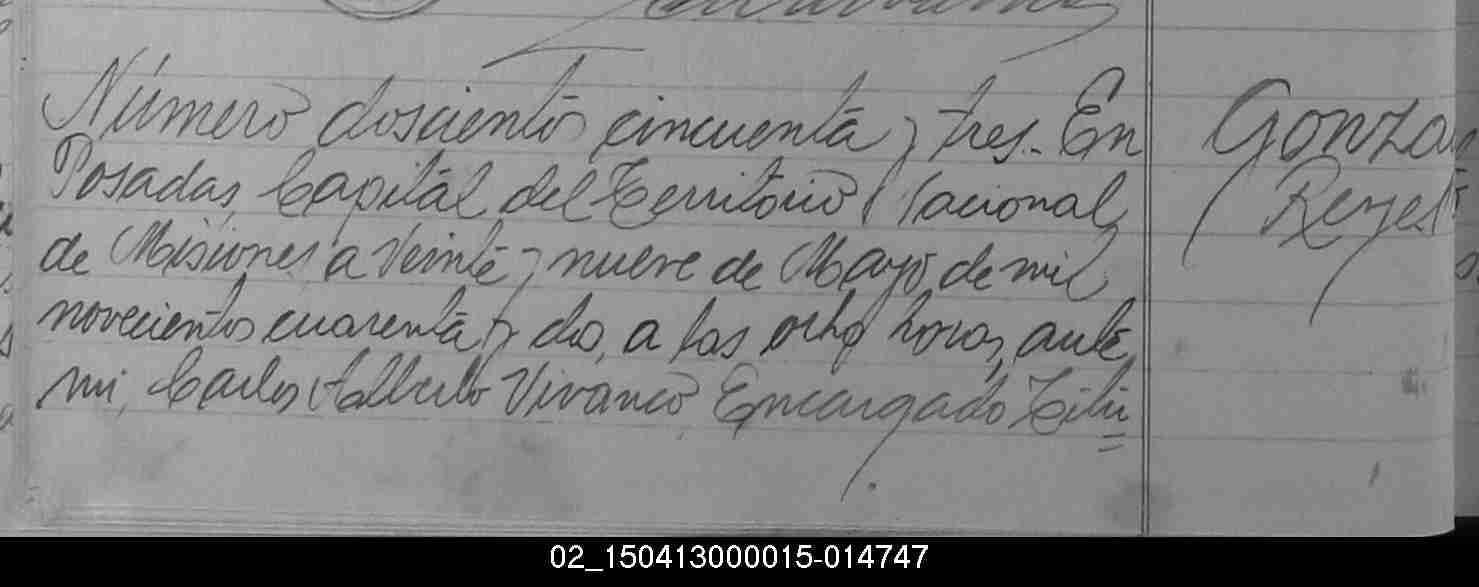 Número doscientos cincuenta y tres. En
Posadas, Capital del Territorio Nacional
de Misiones a veinte y nueve de Mayo de mil
novecientos cuarenta y dos, a las ocho horas, ante
mi, Carlos Alberto Vivanco, Encargado Titu
Gonza
Reyes
02_150413000015-014747